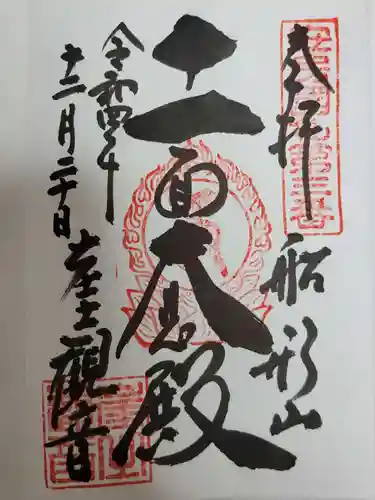 奉拝
船形山
十一面大悲殿
令和四年
十二月二十日
崖觀音